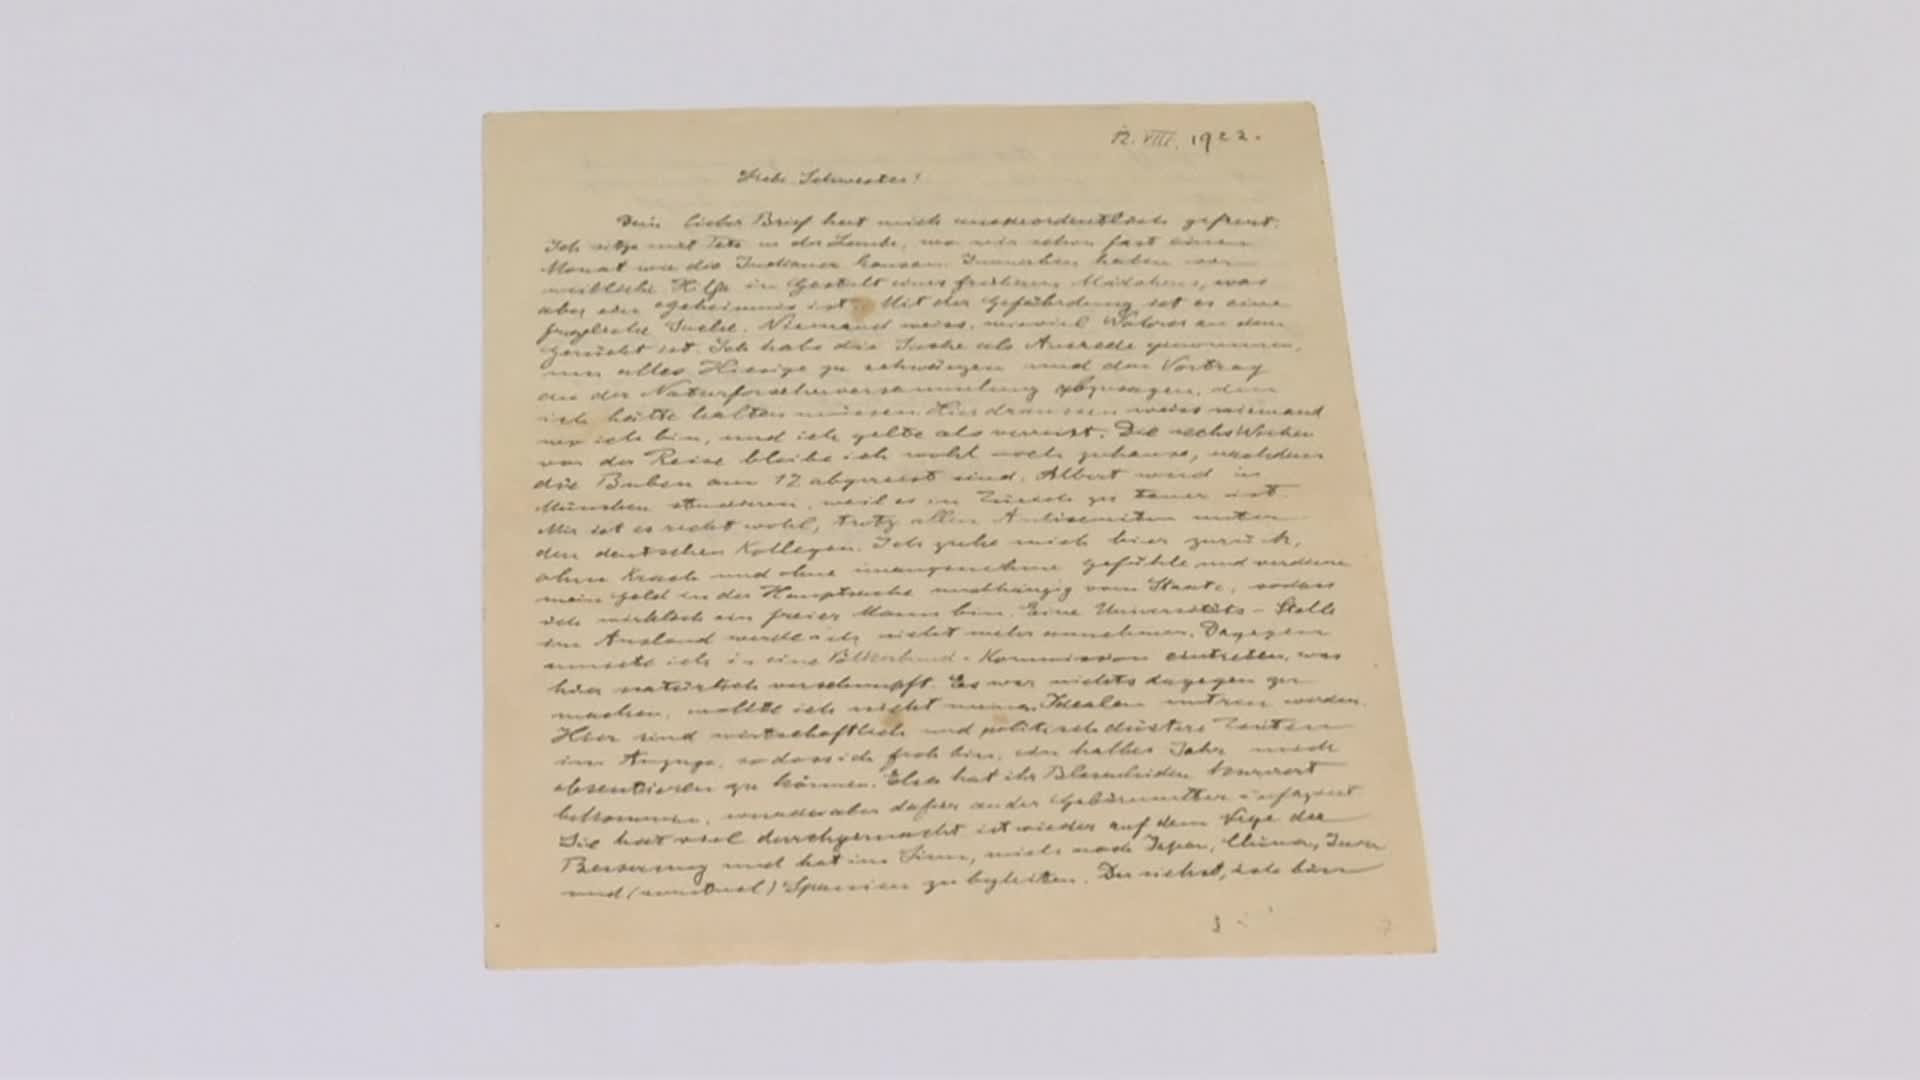 12. VIII. 1922.
Liebe Schwester!
Dein lieber Brief hat mich ausserordentlich gefreut.
Ich sitze mit Tete in der Laube, wo wir schon fast einen
Monat wie die Indianer hausen. Immerhin haben wir
weibliche Hilfe in Gestalt eines früheren Mädchens, was
aber ein Geheimnis ist. Mit der Gefährdung ist es eine
Sache. Niemand weiss, wieviel Wahres an dem
Gerücht ist. Ich habe die Sache als Ausrede genommen,
um alles Hiesige zu schwänzen und den Vortrag
an der Naturforscherversammlung abzusagen, den
ich hätte halten müssen. Hier draussen weiss niemand
wo ich bin, und ich gelte als verreist. Die sechs Wochen
vor der Reise bleibe ich wohl noch zuhause, nachdem
die Buben am 12 abgereist sind. Albert wird in
München studieren, weil es in Zürich zu teuer ist.
Mir ist es recht wohl, trotz allen Antisemiten unter
den deutschen Kollegen. Ich ziehe mich hier zurück,
ohne Krach und ohne unangenehme Gefühle und verdiene
mein Geld in der Hauptsache unabhängig vom Staate, sodass
ich wirklich ein freier Mann bin. Eine Universitäts-Stelle
im Ausland werde ich nicht mehr annehmen. Dagegen
musste ich in eine Völkerbund-Kommission eintreten, was
hier natürlich verschnupft. Es war nichts dagegen zu
machen, wollte ich nicht meinen Idealen untreu werden.
Hier sind wirtschaftlich und politisch düstere Zeiten
im Anzuge, sodass ich froh bin, ein halbes Jahr mich
absentieren zu können. Elsa hat ihr Blasenleiden kuriert
bekommen, wurde aber dafür an der Gebärmutter infiziert
Sie hat viel durchgemacht ist wieder auf dem Wege der
Besserung und hat im Sinn, mich nach Japan, China, Java
und (eventuel) Spanien zu begleiten. Du siehst, ich bin